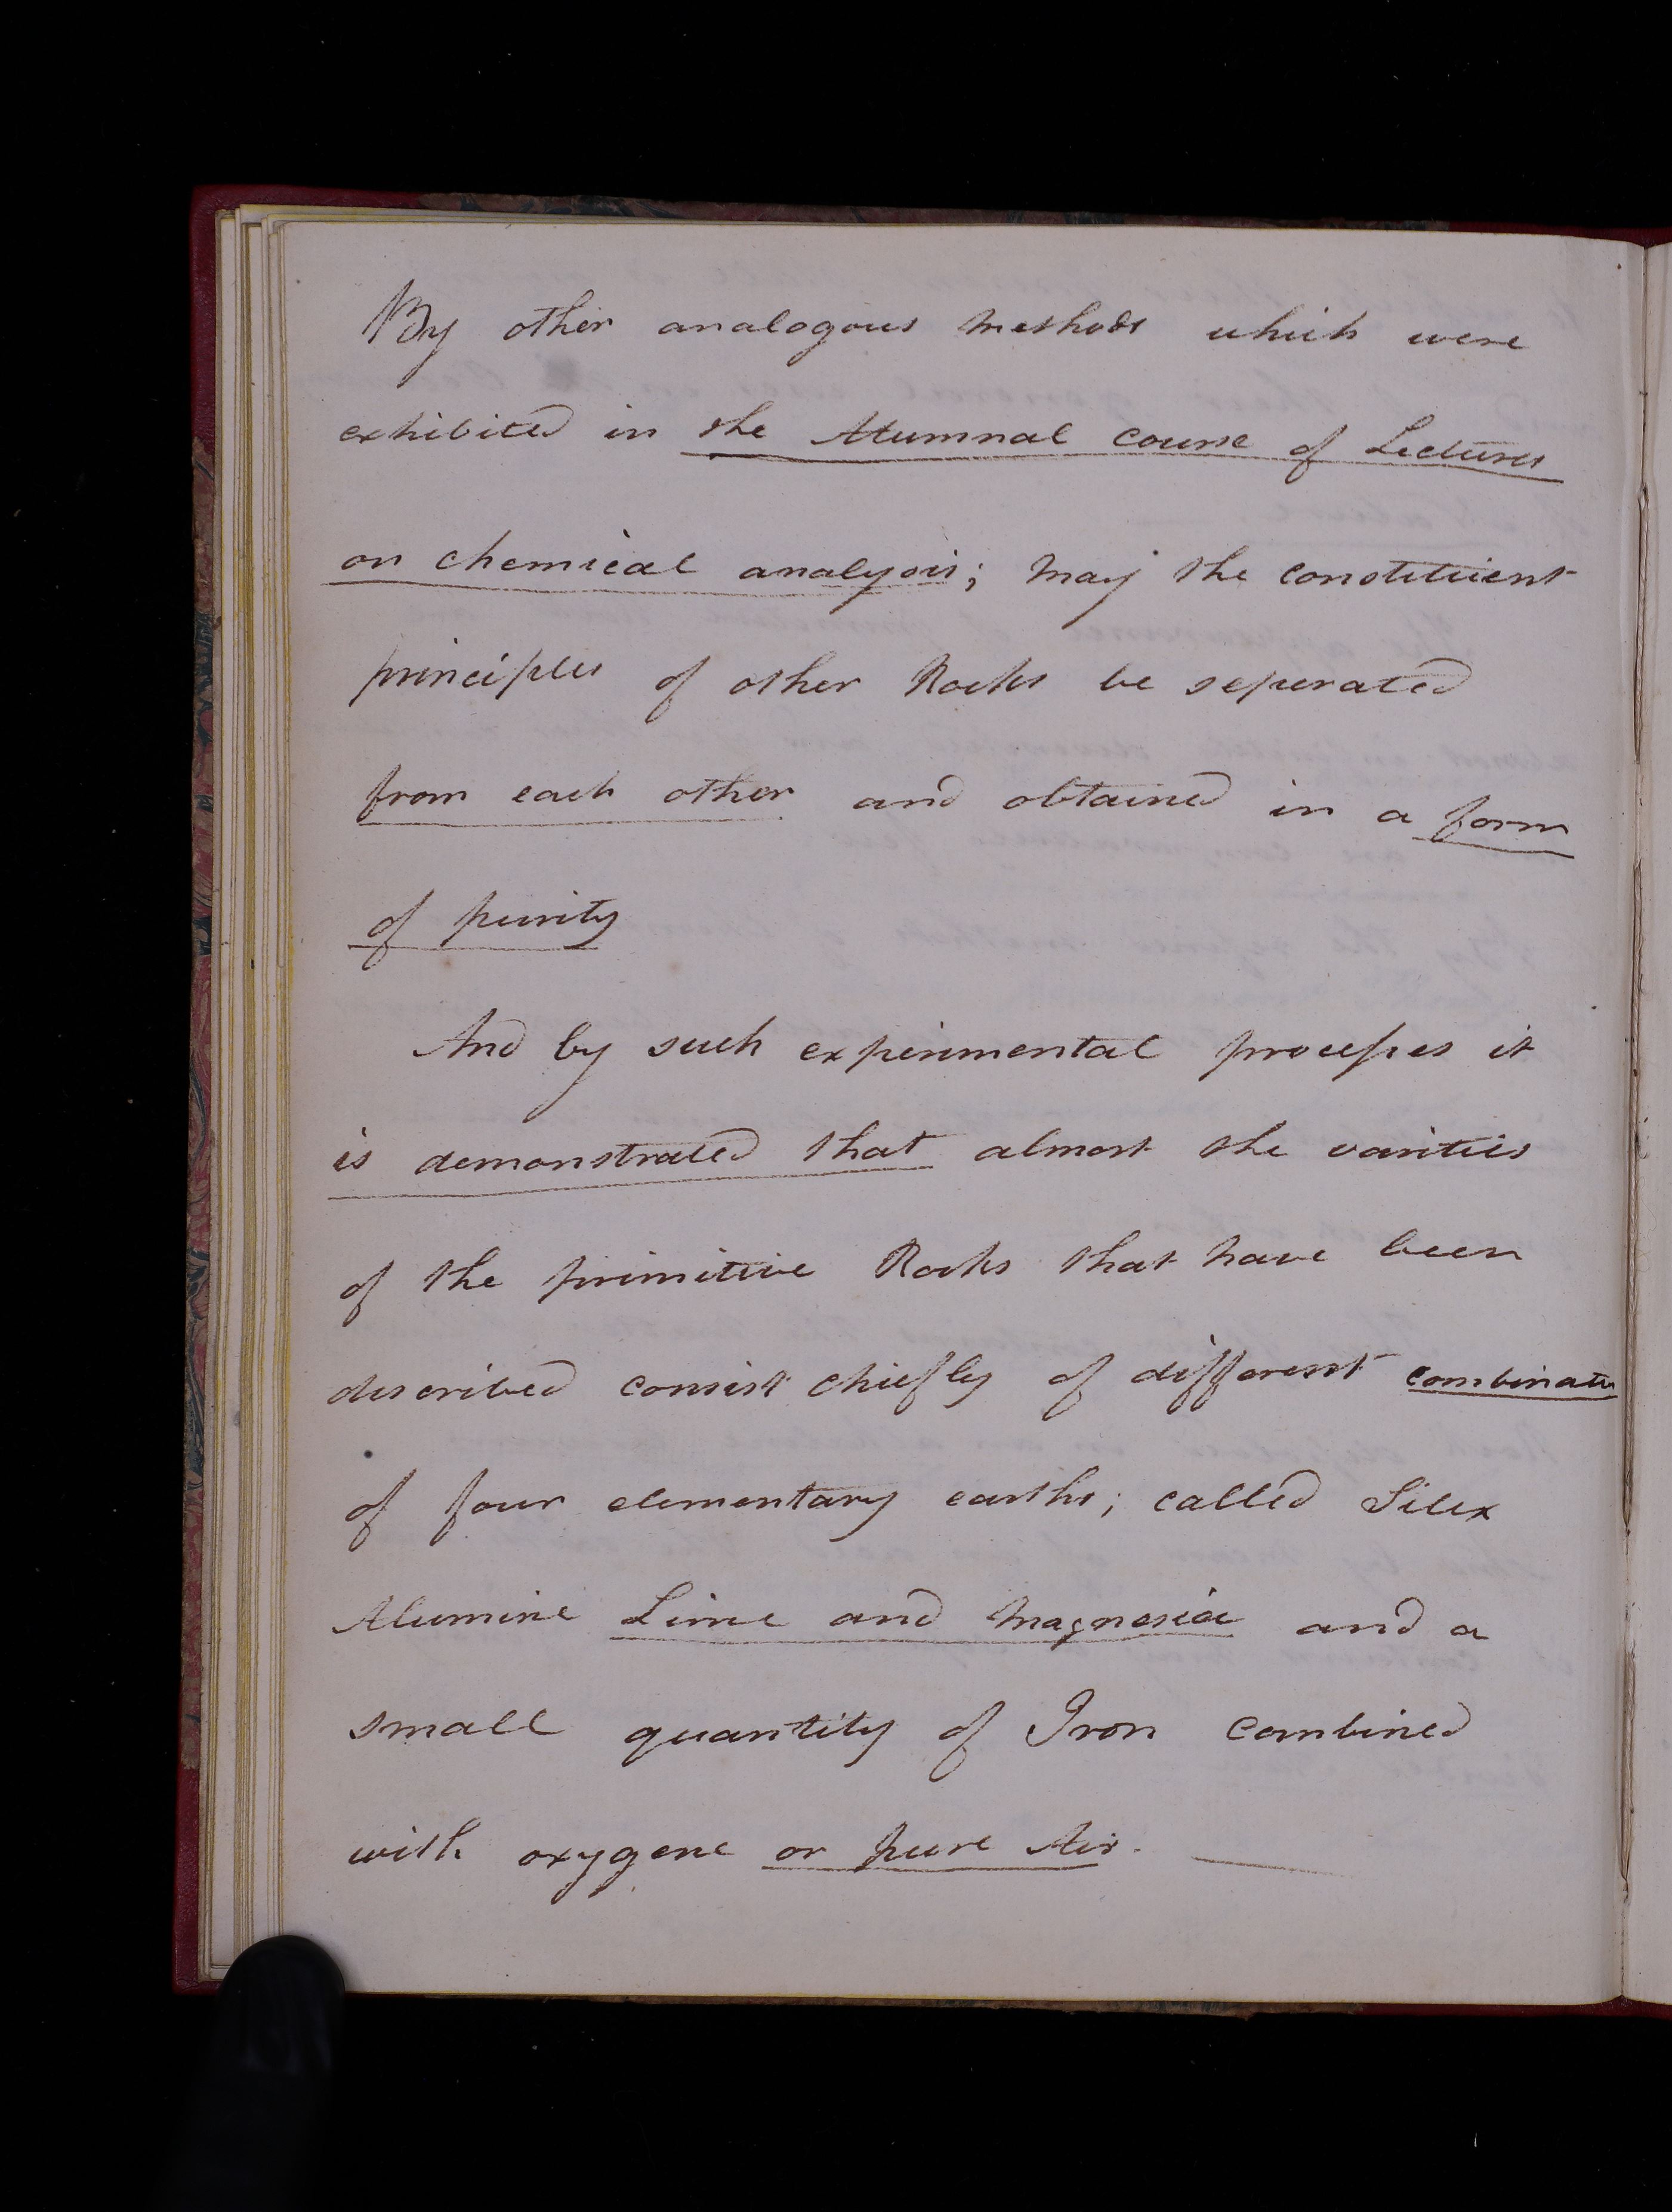 By other analogous methods which were
exhibited in the Atumnal course of Lectures
on chemical analysis; may the constituent
principles of other Rocks be seperated
from each other and obtained in a form
of purity
And by such experimental processes it
is demonstrated that almost the varities
of the primitive Rocks that have been
described consist chiefly of different
of four elementary earths; called Silex
Alumine Lime and Magnesia and a
small quantity of Iron combined
with oxygene or pure Air.